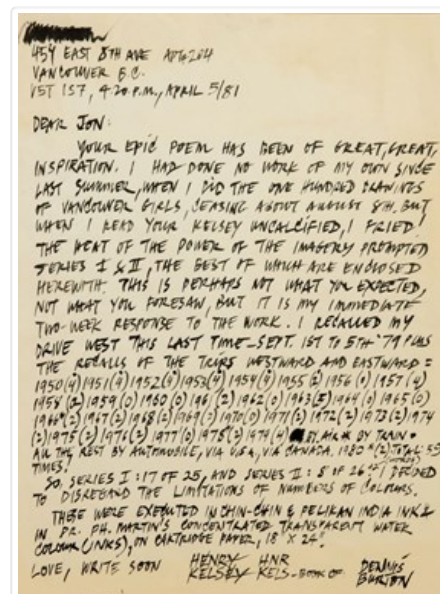 454 EAST 8TH AVE APT. 204
VANCOUVER B.C.
V5T 1S7, 4:20 P.M., APRIL 5/81
DEAR JON:
YOUR EPIC POEM HAS BEEN OF GREAT, GREAT,
INSPIRATION. I HAD DONE NO WORK OF MY OWN SINCE
LAST SUMMER, WHEN I DID THE ONE HUNDRED DRAWINGS
OF VANCOUVER GIRLS, CEASING ABOUT AUGUST 8TH, BUT
WHEN I READ YOUR KELSEY UNCALCIFIED, I FRIED!
THE HEAT OF THE POWER OF THE IMAGERY PROMPTED
SERIES I & II, THE BEST OF WHICH ARE ENCLOSED
HEREWITH. THIS IS PERHAPS NOT WHAT YOU EXPECTED,
NOT WHAT YOU FORESAW, BUT IT IS MY IMMEDIATE
TWO-WEEK RESPONSE TO THE WORK. I RECALLED MY
DRIVE WEST THIS LAST TIME - SEPT. 1ST TO 5TH '79 PLUS
THE RECALLS OF THE TRIPS WESTWARD AND EASTWARD =
1950(4) 1951(4) 1952(4) 1953(4) 1954(4) 1955(2) 1956(0) 1957(4)
1958(2) 1959(0) 1960(0) 1961(2) 1962(0) 1963(5) 1964(0) 1965(0)
1966(2) 1967(2) 1968(2) 1969(2) 1970(0) 1971(2) 1972(2) 1973(2) 1974
(2) 1975(2) 1976(2) 1977(0) 1978(2) 1979(4) BY AIR BY TRAIN
ALL THE REST BY AUTOMOBILE, VIA U.S.A., VIA CANADA. 1980 (2) TOTAL: 55
TIMES!
SO, SERIES I: 17 OF 25, AND SERIES II: 5 OF 26 I DECIDED
TO DISREGARD THE LIMITATIONS OF NUMBERS OF COLOURS.
THESE WERE EXECUTED IN CHIN-CHIN & PELIKAN INDIA INK &
IN DR. PH. MARTIN'S CONCENTRATED TRANSPARENT WATER
COLOUR (INKS), ON CARTRIDGE PAPER, 18" X 24".
LOVE, WRITE SOON HENRY HNR DENNIS
KELSEY KELS - BOOK OF BURTON